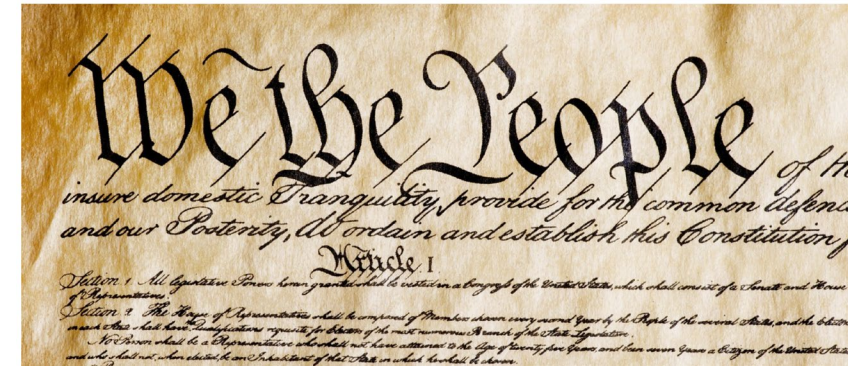 We the People of th
insure domestic Tranquility, provide for the common defenc
and our Posterity, do ordain and establish this Constitution f
Article. I
Section. 1. All legislative Powers herein granted shall be vested in a Congress of the United States, which shall consist of a Senate and House
of Representatives.
Section. 2. The House of Representatives shall be composed of Members chosen every second Year by the People of the several States, and the Electors
in each State shall have the Qualifications requisite for Electors of the most numerous Branch of the State Legislature.
No Person shall be a Representative who shall not have attained to the Age of twenty five Years, and been seven Years a Citizen of the United States
and who shall not, when elected, be an Inhabitant of that State in which he shall be chosen.